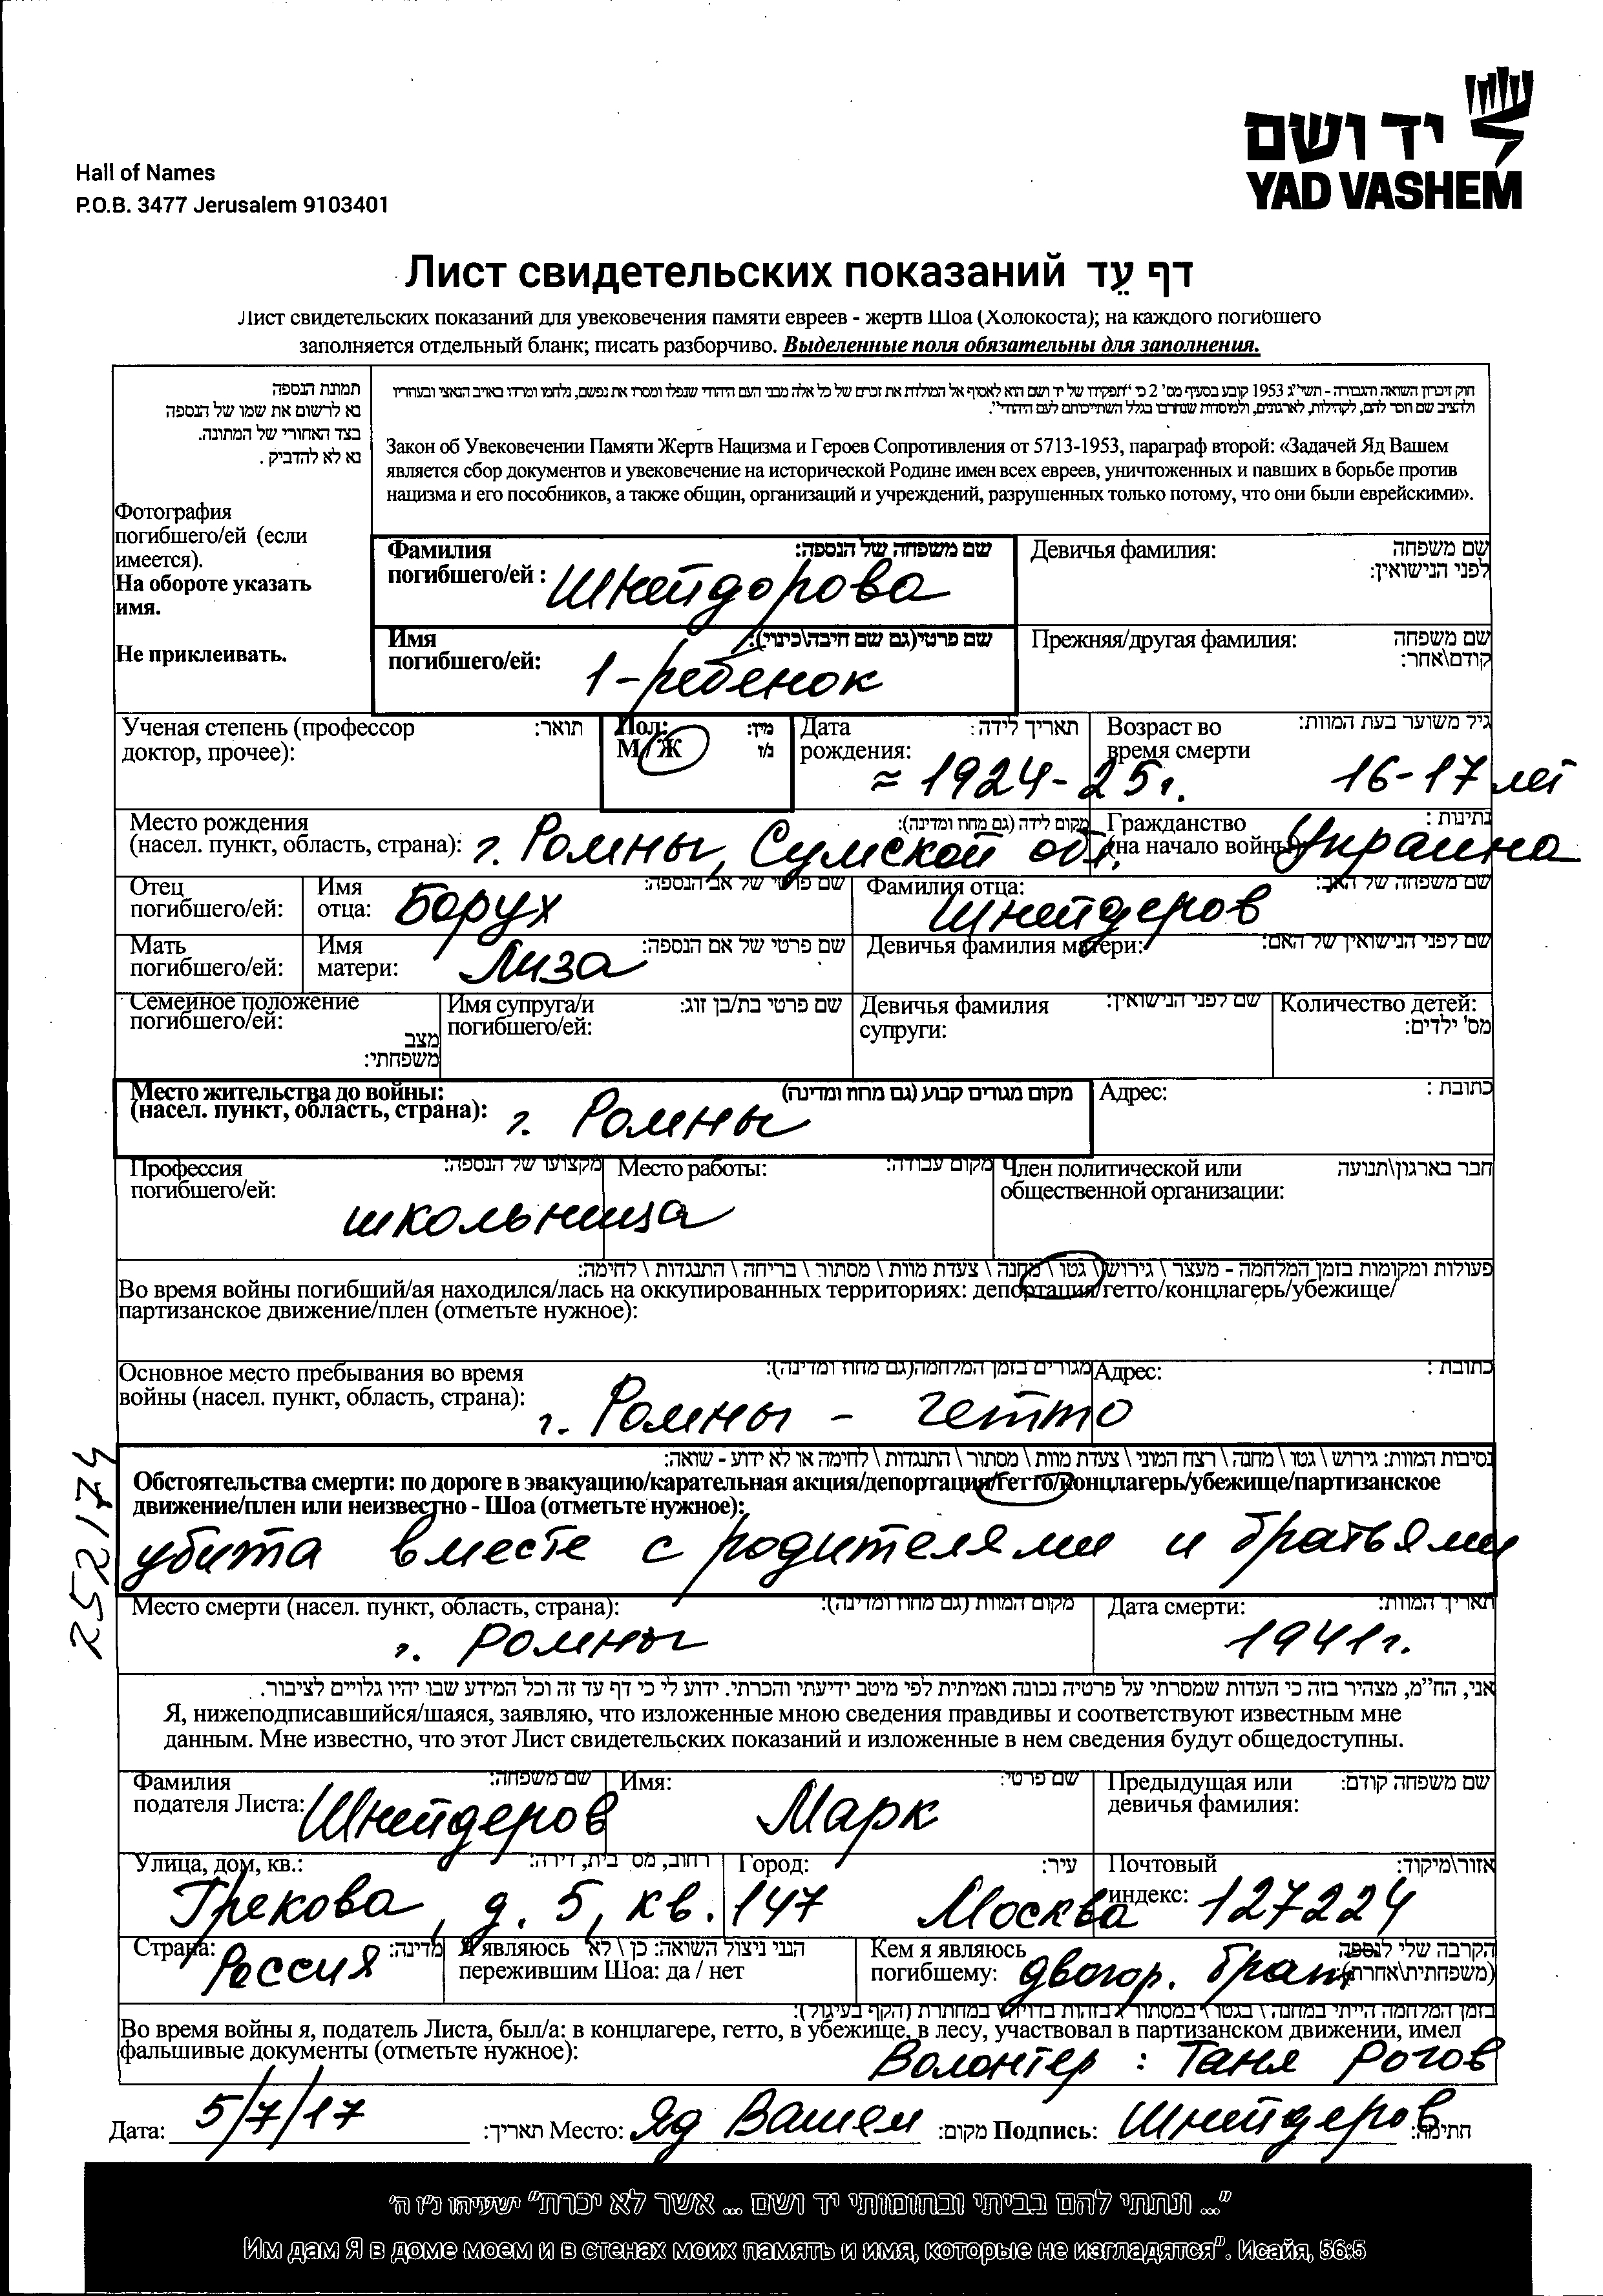 יד ושם
YAD VASHEM
Hall of Names
P.O.B. 3477 Jerusalem 9103401
Лист свидетельских показаний דף עֵד
Лист свидетельских показаний для увековечения памяти евреев - жертв Шоа (Холокоста); на каждого погибшего
заполняется отдельный бланк; писать разборчиво. Выделенные поля обязательны для заполнения.
תמונת הנספה
נא לרשום את שמו של הנספה
בצד האחורי של המתונה.
נא לא להדביק .
Фотография
погибшего/ей (если
имеется).
На обороте указать
имя.
Не приклеивать.
חוק זיכרון השואה והגבורה - תשי"ג 1953 קובע בסעיף מס' 2 כי "תפקידו של יד ושם הוא לאסוף אל המולדת את זכרם של כל אלה מבני העם היהודי שנפלו ומסרו את נפשם, נלחמו ומרדו באויב הנאצי ובעוזריו
ולהציב שם וזכר להם, לקהילות, לארגונים, ולמוסדות שנחרבו בגלל השתייכותם לעם היהודי".
Закон об Увековечении Памяти Жертв Нацизма и Героев Сопротивления от 5713-1953, параграф второй: «Задачей Яд Вашем
является сбор документов и увековечение на исторической Родине имен всех евреев, уничтоженных и павших в борьбе против
нацизма и его пособников, а также общин, организаций и учреждений, разрушенных только потому, что они были еврейскими».
Фамилия погибшего/ей : שם משפחה של הנספה: Шнейдорова
Девичья фамилия: שם משפחה לפני הנישואין:
Имя погибшего/ей: שם פרטי(גם שם חיבה\כינוי): 1-ребенок
Прежняя/другая фамилия: שם משפחה קודם\אחר:
Ученая степень (профессор доктор, прочее): תואר:
Пол: М/Ж מין: ז/נ
Дата рождения: תאריך לידה: ≈ 1924-25г.
Возраст во время смерти גיל משוער בעת המוות: 16-17 лет
Место рождения (насел. пункт, область, страна): מקום לידה (גם מחוז ומדינה): г. Ромны, Сумской обл.
Гражданство (на начало войны) נתינות : Украина
Отец погибшего/ей: Имя отца: שם פרטי של אב הנספה: Борух
Фамилия отца: שם משפחה של האב: Шнейдеров
Мать погибшего/ей: Имя матери: שם פרטי של אם הנספה: Лиза
Девичья фамилия матери: שם לפני הנישואין של האם:
Семейное положение погибшего/ей: מצב משפחתי:
Имя супруга/и погибшего/ей: שם פרטי בת/בן זוג:
Девичья фамилия супруги: שם לפני הנישואין:
Количество детей: מס' ילדים:
Место жительства до войны: (насел. пункт, область, страна): מקום מגורים קבוע (גם מחוז ומדינה) г. Ромны
Адрес: כתובת :
Профессия погибшего/ей: מקצועו של הנספה: школьница
Место работы: מקום עבודה:
Член политической или общественной организации: חבר בארגון\תנועה
פעולות ומקומות בזמן המלחמה - מעצר \ גירוש \ גטו \ מחנה \ צעדת מוות \ מסתור \ בריחה \ התנגדות \ לחימה:
Во время войны погибший/ая находился/лась на оккупированных территориях: депортация/гетто/концлагерь/убежище/
партизанское движение/плен (отметьте нужное):
Основное место пребывания во время войны (насел. пункт, область, страна): מגורים בזמן המלחמה(גם מחוז ומדינה): г. Ромны - гетто
Адрес: כתובת :
נסיבות המוות: גירוש \ גטו \ מחנה \ רצח המוני \ צעדת מוות \ מסתור \ התנגדות \ לחימה או לא ידוע - שואה:
Обстоятельства смерти: по дороге в эвакуацию/карательная акция/депортация/гетто/концлагерь/убежище/партизанское
движение/плен или неизвестно - Шоа (отметьте нужное):
убита вместе с родителями и братьями
252174
Место смерти (насел. пункт, область, страна): מקום המוות (גם מחוז ומדינה): г. Ромны
Дата смерти: תאריך המוות: 1941г.
אני, הח"מ, מצהיר בזה כי העדות שמסרתי על פרטיה נכונה ואמיתית לפי מיטב ידיעתי והכרתי. ידוע לי כי דף עד זה וכל המידע שבו יהיו גלויים לציבור.
Я, нижеподписавшийся/шаяся, заявляю, что изложенные мною сведения правдивы и соответствуют известным мне
данным. Мне известно, что этот Лист свидетельских показаний и изложенные в нем сведения будут общедоступны.
Фамилия подателя Листа: שם משפחה: Шнейдеров
Имя: שם פרטי: Марк
Предыдущая или девичья фамилия: שם משפחה קודם:
Улица, дом, кв.: רחוב, מס בית, דירה: Грекова, д. 5, кв. 147
Город: עיר: Москва
Почтовый индекс: אזור\מיקוד: 127224
Страна: מדינה: Россия
Я являюсь пережившим Шоа: да / нет הנני ניצול השואה: כן \ לא
Кем я являюсь погибшему: הקרבה שלי לנספה (משפחתית\אחרת): двоюр. брат
בזמן המלחמה הייתי במחנה \ בגטו \ במסתור \ בזהות בדויה \ במחתרת (הקף בעיגול):
Во время войны я, податель Листа, был/а: в концлагере, гетто, в убежище, в лесу, участвовал в партизанском движении, имел
фальшивые документы (отметьте нужное):
Волонтер : Таня Рогов
Дата: 5/7/17 תאריך: Место: Яд Вашем מקום: Подпись: Шнейдеров חתימה:
"... ונתתי להם בביתי ובחומותי יד ושם ... אשר לא יכרת" ישעיהו נ"ו ה'
Им дам Я в доме моем и в стенах моих память и имя, которые не изгладятся". Исайя, 56:5